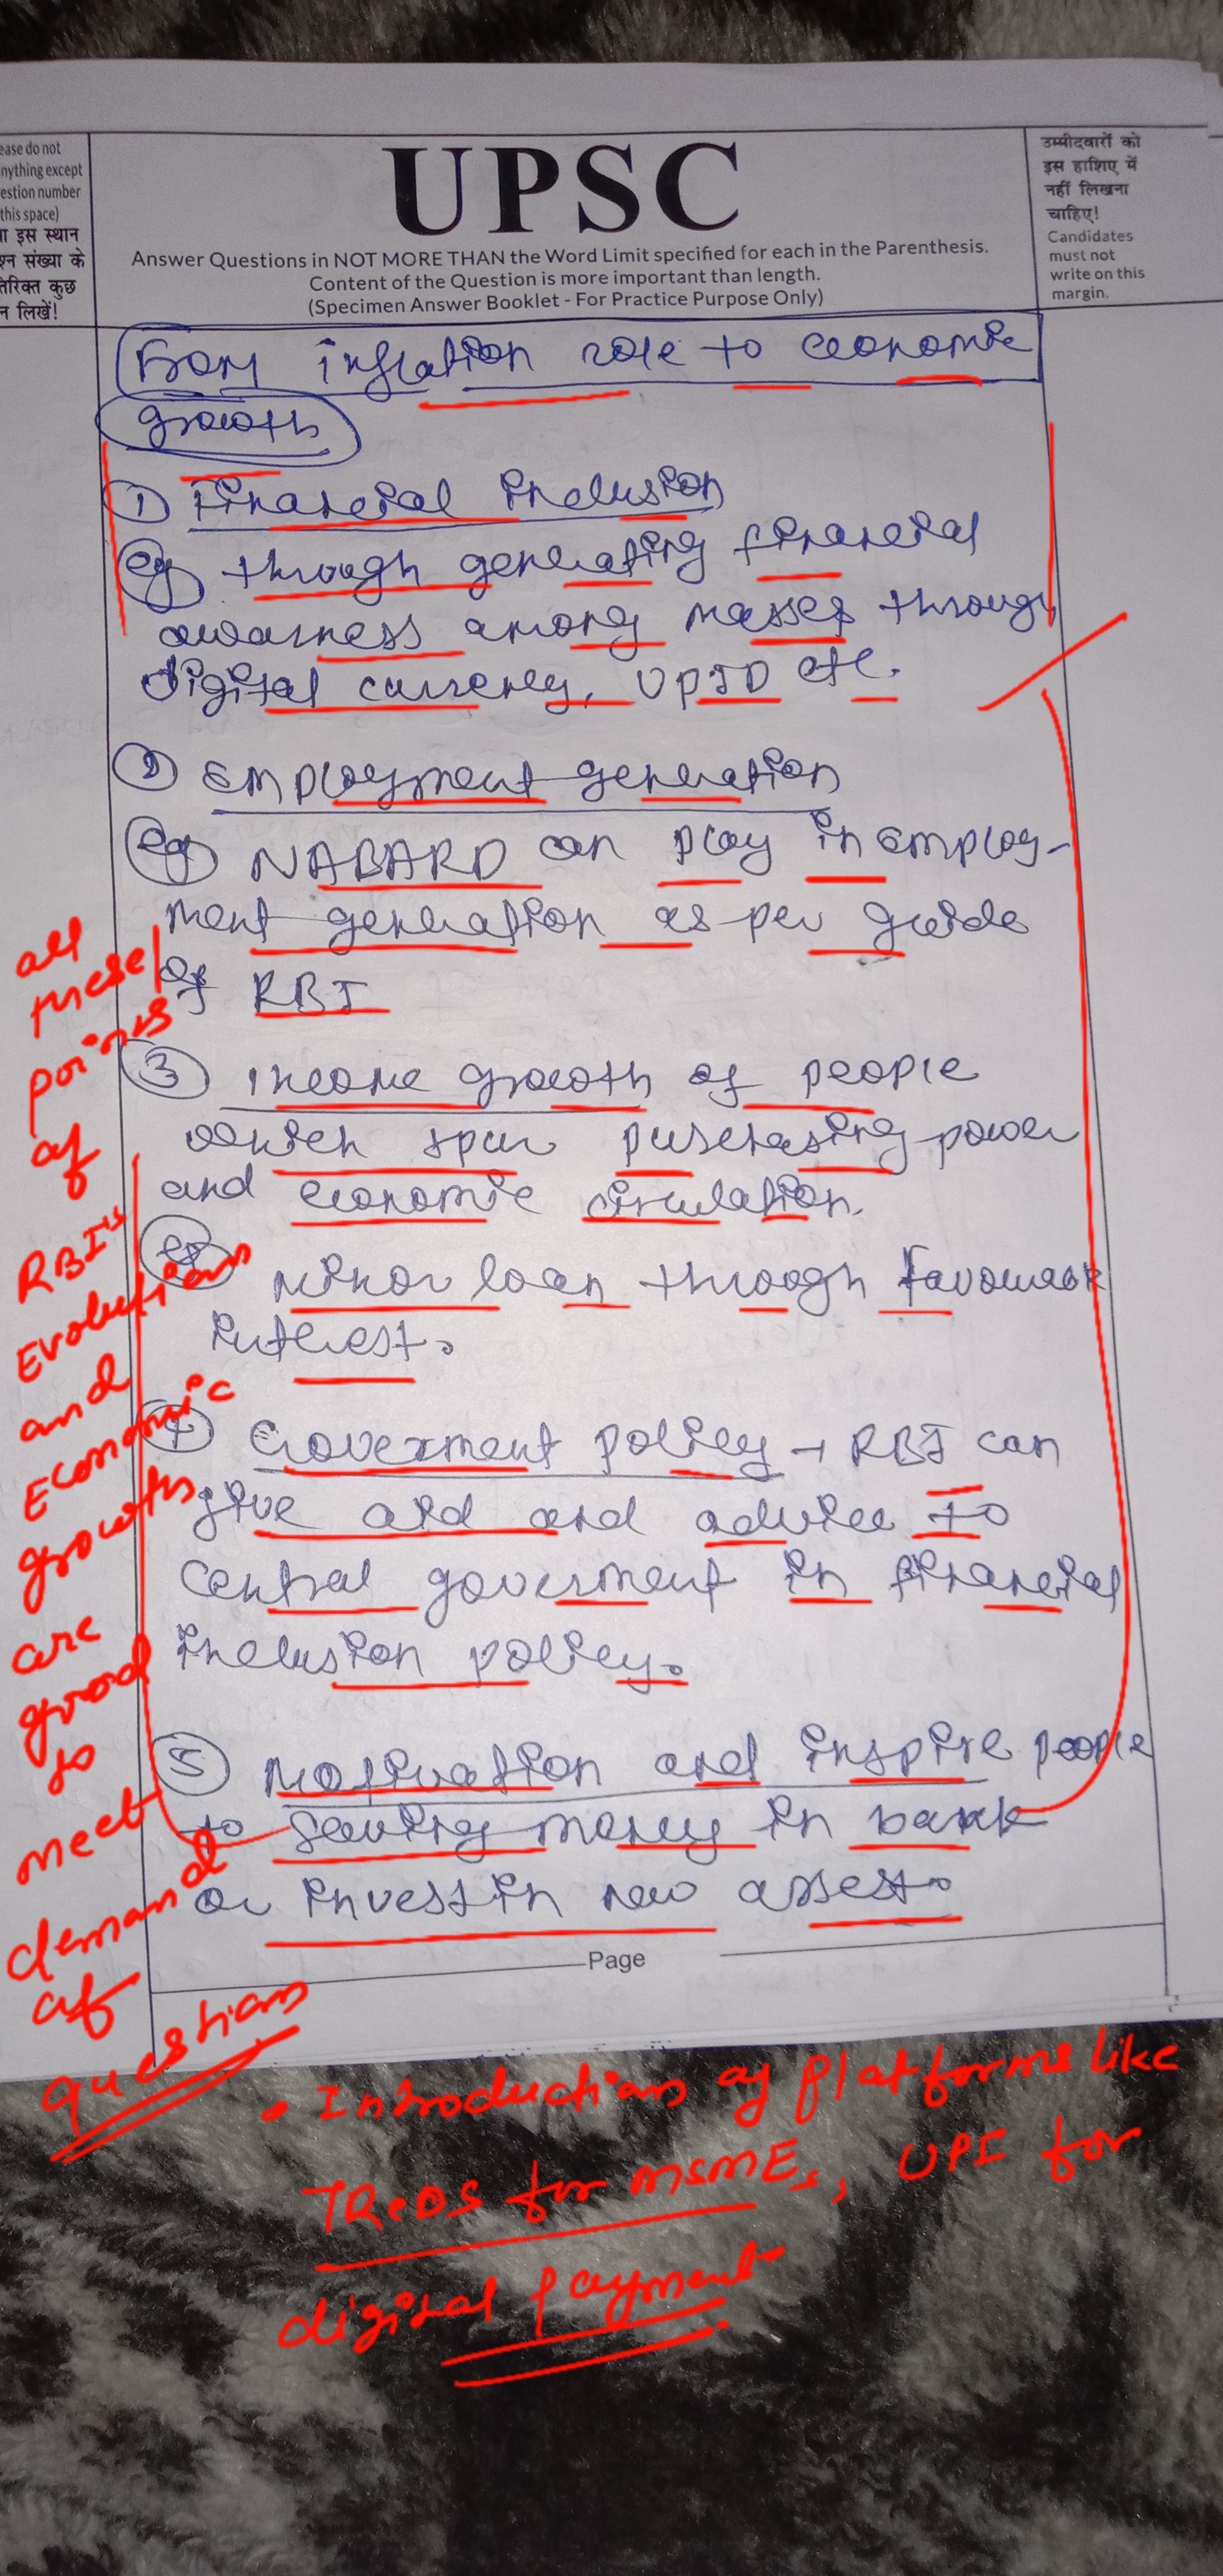 ease do not
nything except
estion number
this space)
ा इस स्थान
श्न संख्या के
तिरिक्त कुछ
न लिखें!
UPSC
Answer Questions in NOT MORE THAN the Word Limit specified for each in the Parenthesis.
Content of the Question is more important than length.
(Specimen Answer Booklet - For Practice Purpose Only)
उम्मीदवारों को
इस हाशिए में
नहीं लिखना
चाहिए!
Candidates
must not
write on this
margin.
From inflation role to economic
growth
① Financial inclusion
eg through generating financial
awarness among masses through
digital currency, UPID etc.
② Employment generation
eg NABARD can play in employ-
ment generation as per guide
of RBI
③ Income growth of people
which spur purchasing power
and economic circulation.
eg Minor loan through favourable
interest.
④ Goverment policy → RBI can
give aid and advice to
central goverment in financial
inclusion policy.
⑤ Motivation and inspire people
to saving money in bank
or invest in new assest.
Page
all
these
points
of
RBI's
Evolution
and
Economic
growth
are
good
to
meet
demand
of
question
• Introduction of platforms like
TReDS for MSMEs, UPI for
digital payment